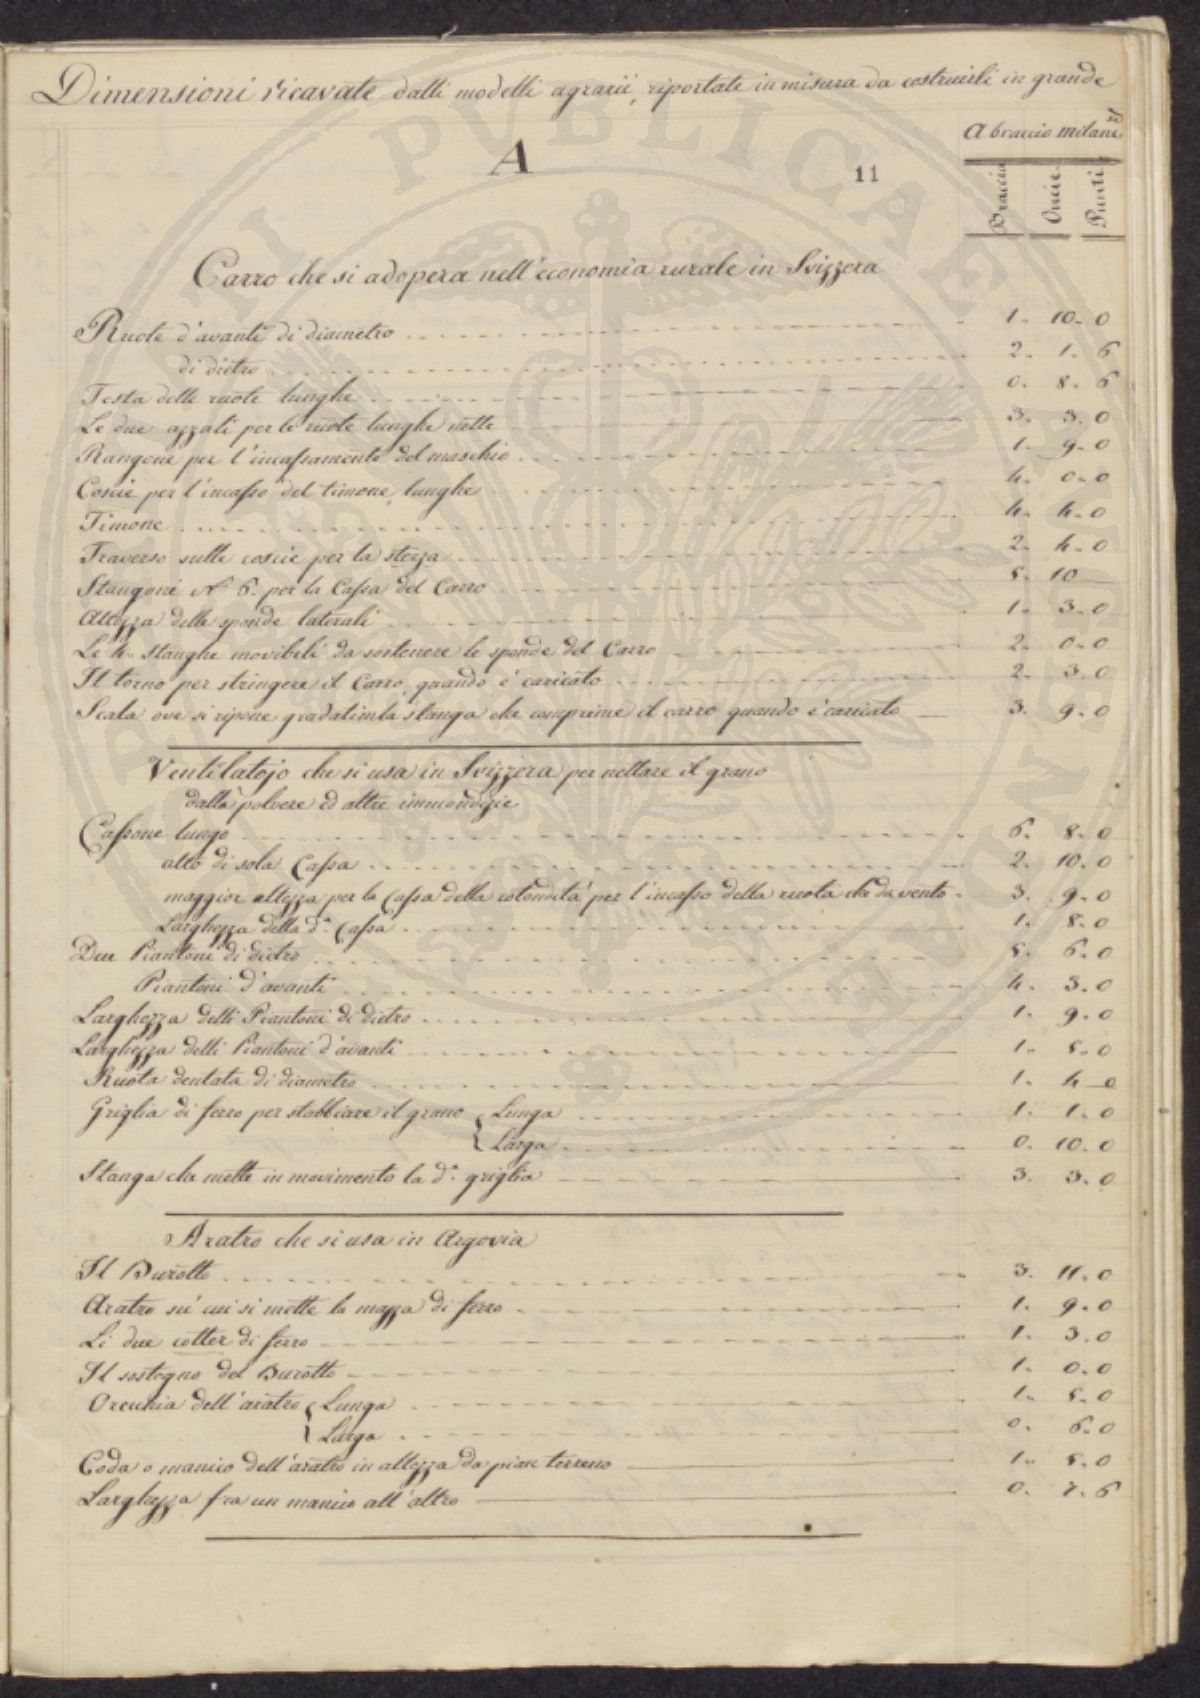 Dimensioni ricavate dalli modelli agrarii, riportate in misura da costruirli in grande
A braccio milane
A
11
Braccia Oncie Punti
Carro che si adopera nell'economia rurale in Svizzera
Ruote d'avanti di diametro 1. 10. 0
di dietro 2. 1. 6
Testa delle ruote lunghe 0. 8. 6
Le due azzali per le ruote lunghe nette 3. 3. 0
Rangone per l'incassamento del maschio 1. 9. 0
Coscie per l'incasso del timone, lunghe 4. 0. 0
Timone 4. 4. 0
Traverso sulle coscie per la sterza 2. 4. 0
Stangoni N. 6. per la Cassa del Carro 5. 10
Altezza delle sponde laterali 1. 3. 0
Le 4. stanghe movibili da sostenere le sponde del Carro 2. 0. 0
Il torno per stringere il Carro, quando è caricato 2. 3. 0
Scala ove si ripone gradatim la stanga che comprime il carro quando è caricato 3. 9. 0
Ventilatojo che si usa in Svizzera per nettare il grano
dalla polvere ed altre immondizie.
Cassone lungo 6. 8. 0
alto di sola Cassa 2. 10. 0
maggior altezza per la Cassa della rotondità per l'incasso della ruota che dà vento 3. 9. 0
Larghezza della d.a Cassa 1. 8. 0
Due Piantoni di dietro 5. 6. 0
Piantoni d'avanti 4. 3. 0
Larghezza delli Piantoni di dietro 1. 9. 0
Larghezza delli Piantoni d'avanti 1. 5. 0
Ruota dentata di diametro 1. 4. 0
Griglia di ferro per stabbiare il grano { Lunga 1. 1. 0
{ Larga 0. 10. 0
Stanga che mette in movimento la d.a griglia 3. 3. 0
Aratro che si usa in Argovia
Il Burotto 3. 11. 0
Aratro su' cui si mette la mazza di ferro 1. 9. 0
Li due cotter di ferro 1. 3. 0
Il sostegno del Burotto 1. 0. 0
Orecchia dell'aratro { Lunga 1. 5. 0
{ Larga 0. 6. 0
Coda o manico dell'aratro in altezza da pian terreno 1. 5. 0
Larghezza fra un manico all'altro 0. 7. 6